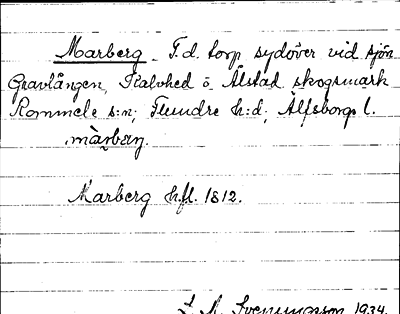 Marberg. F.d. torp sydöver vid sjön
Gravlången, Kalvhed o. Alstad skogsmark
Rommele s:n; Flundre h:d; Älfsborgs l.
màrbärg.
Marberg hfl. 1812.
L. A. Svenungsson 1934.